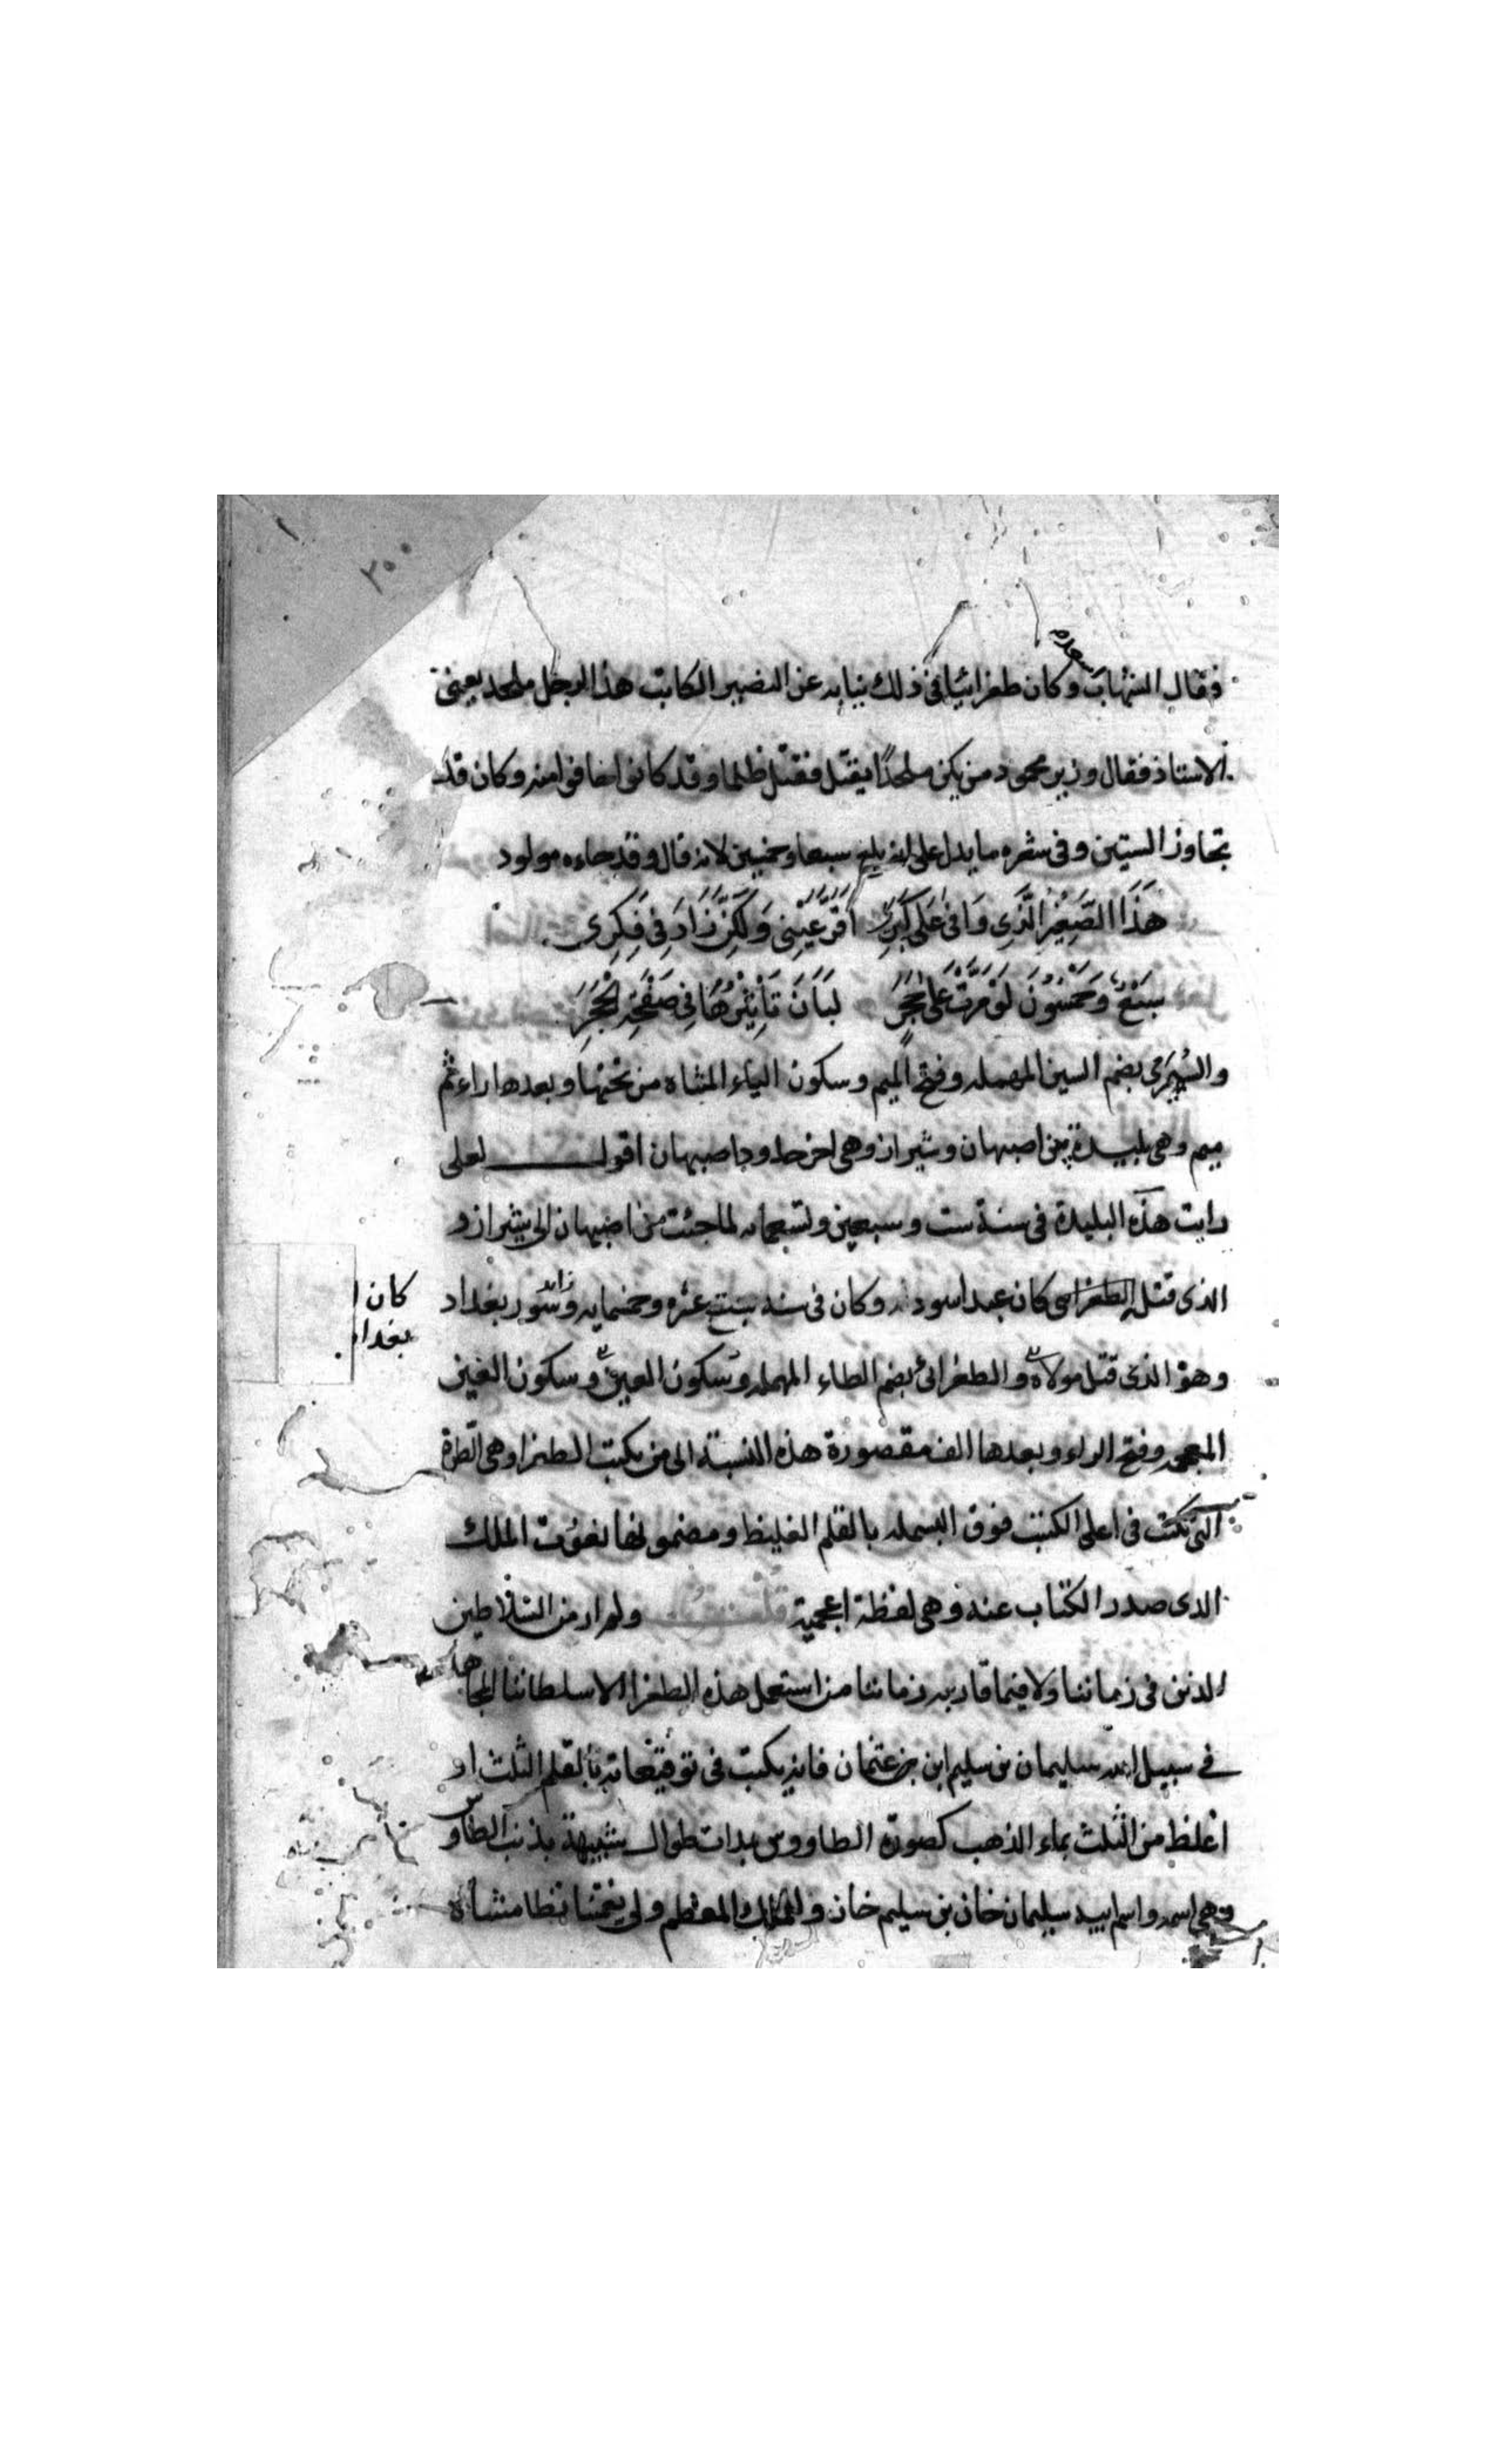 ٢٥٠
فقال الشهاب اسعد وكان طغرائيا في ذلك نيابه عن النصير الكاتب هذا الرجل ملحد يعني
الاستاذ فقال وزير محمود من يكن ملحدًا يقتل فقتل ظلما وقد كانوا خافوا منه وكان قد
تجاوز الستين وفي شعره ما يدل على انه بلغ سبعا وخمسين لانه قال وقد جاءه مولود
هَذَا الصَّغِيْرُ الَّذِي وَافىٰ عَلَى كِبَرٍ اَقَرَّ عَيْنِي وَلَكِنْ زَادَ فِي فِكَرِى
سَبْعٌ وَخَمْسُوْنَ لَوْ مَرَّتْ عَلَى حَجَرٍ لَبَانَ تَأْثِيْرُهَا فِي صَفْحَةِ الْحَجَرِ
والسُّمَيرمى بضم السين المهمله وفتح الميم وسكون الياء المثناه من تحتها وبعدها راء ثم
ميم وهي بليدة بين اصبهان وشيراز وهي اخر حدود اصبهان اقول لعلى
رايت هذه البليدة في سنة ست وسبعين وتسعمايه لما جئت من اصبهان الى شيراز و
الذى قتل الطغرائي كان عبد اسود له وكان في سنه ست عشره وخمسمايه وسور بغداد
زايد
كان ا
بغداد
وهو الذى قتل مولاه والطغرائي بضم الطاء المهمله وسكون العين وسكون الغين
المعجمه وفتح الراء وبعدها الف مقصورة هذه النسبة الى من يكتب الطغرا وهي الطرة
التى تكتب في اعلى الكتب فوق البسمله بالقلم الغليظ ومضمونها نعوت الملك
الذى صدر الكتاب عنه وهي لفظة اعجمية قلت ولم ار من السلاطين
الذين في زماننا ولا فيما قاربه زماننا من استعمل هذه الطغرا الا سلطاننا المجاهد
في سبيل الله سليمان بن سليم ابن بن عثمان فانه يكتب في توقيعاته بالقلم الثلث او
اغلظ من الثلث بماء الذهب كصورة الطاووس بدات طوال شبيهة بذنب الطاوس
وهي اسمه واسم ابيه سليمان خان بن سليم خان وللملك المعظم ولى نعمتنا نظامشاه